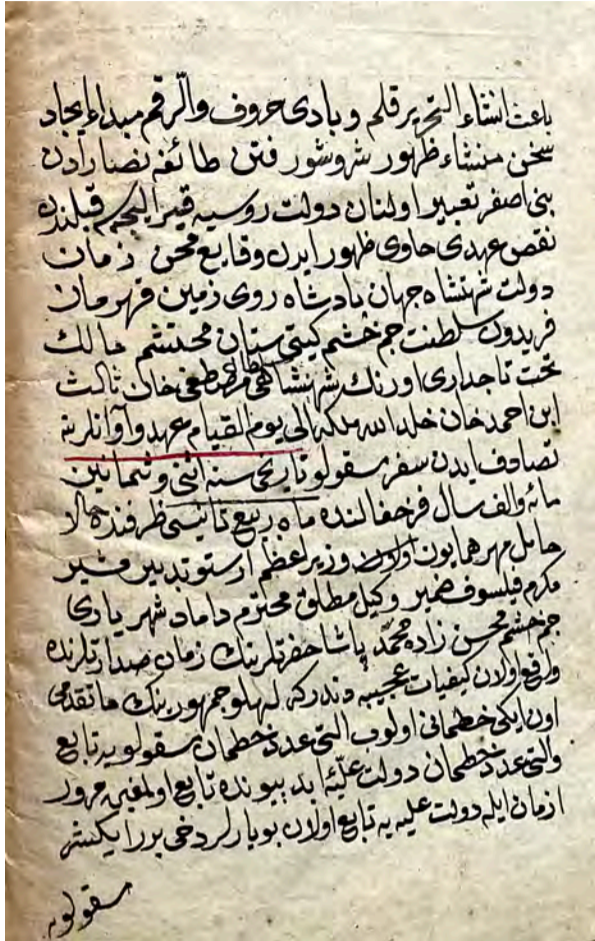 باعث انشاء التحریر قلم و بادی حروف والرقم مبداء ایجاد
سخن منشاء ظهور شروشور فتن طائفه نصارادن
بنی اصفر تعبیر اولنان دولت روسیه قیر الیجیم قبلندن
نقص عهدی حاوی ظهور ایدن وقایع محن زمان
دولت شهنشاه جهان پادشاه روی زمین قهرمان
فریدون سلطنت جم حشم کیتی ستان محتشم مالك
تخت تاجداری اورنك شهنشاهی مصطفی خان ثالث
ابن احمد خان خلد الله ملکه الی یوم القیام عهد واوانلرینه
تصادف ایدن سفر مسقولو تاریخی سنه اثنی وثمانین
مائه والف سال فرخفالنده ماه ربیع ثانیسی ظرفنده حالا
حامل مهر همایون اولان وزیر اعظم ارستو تدبیر مشیر
مکرم فیلسوف ضمیر وکیل مطلق محترم داماد شهریاری
جم حشم محسن زاده محمد پاشا حضرتلرینك زمان صدارتلرنده
واقع اولان کیفیات عجیبه دندرکه لهلو جمهورینك ماتقدمی
اون ایکی خطمانی اولوب التی عدد خطمان مسقولویه تابع
والتی عدد خطمان دولت علیۀ ابد پیونده تابع اولمغین مرور
ازمان ایله دولت علیه یه تابع اولان بویارلر دخی برر ایکیشر
مسقولویه